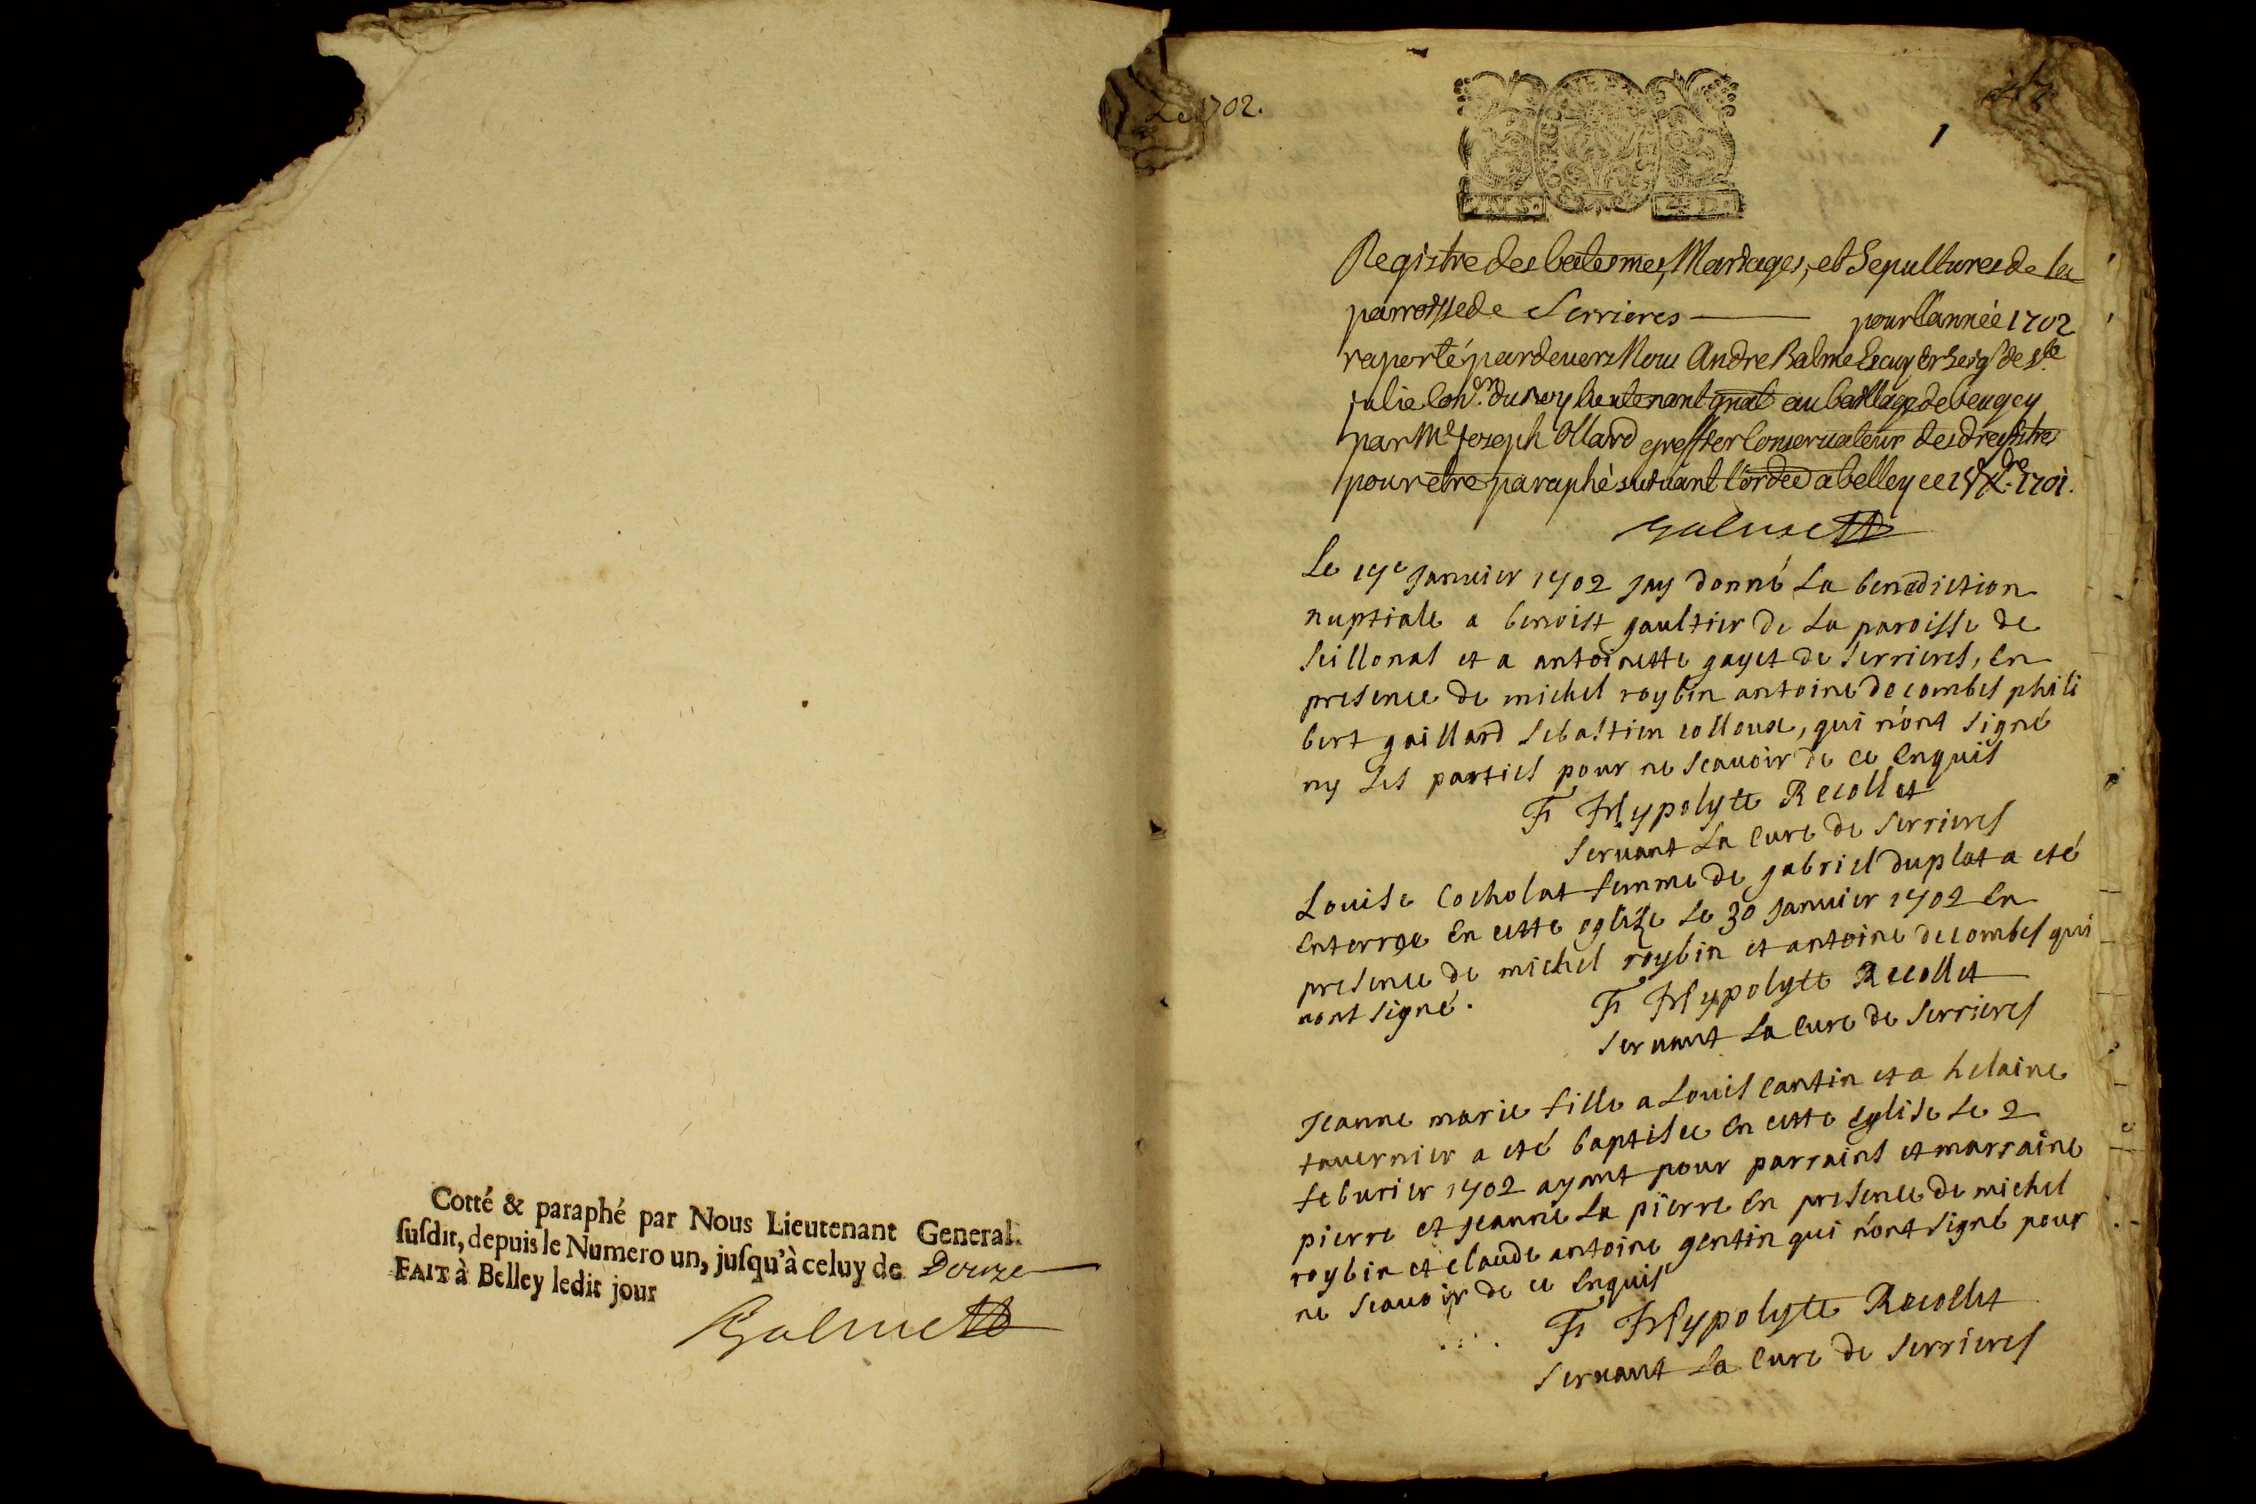 Cotté & paraphé par Nous Lieutenant General
ſuſdit, depuis le Numero un, juſqu'à celuy de Douze
FAIT à Belley ledit jour
Balme
1702.
1
Registre des batesmes, Mariages, et Sepultures de la
parroisse de Serrieres pour l'année 1702
raporté pardevers Nous Andre Balme Escuyer Seigr de Ste
julie Conr. du Roy lieutenant gnal au bailliage de beugey
par Me Joseph Ollard greffier Conservateur desd registres
pour etre paraphé suivant l'ordce a belley ce Xbre 1701.
Balme
Le 17e Janvier 1702 jay donné La benediction
nuptiale a benoist gaultier de La paroisse de
Seillonas et a antoinette gayet de Serrieres, en
presence de michel roybin antoine decombes phili
bert gaillard Sebastien colloux, qui n'ont signé
ny Les parties pour ne scavoir de ce enquis
Fr Hypolyte Recollet
Servant La cure de Serrieres
Louise Cocholat femme de gabriel duplat a eté
enterree en cette eglize Le 30 Janvier 1702 en
presence de michel roybin et antoine decombes qui
nont signé.
Fr Hypolyte Recollet
Servant La cure de Serrieres
Jeanne marie fille a Louis cantin et a helaine
tavernier a eté baptisee en cette eglise Le 2
feburier 1702 ayant pour parrains et marraine
pierre et jeanne La pierre en presence de michel
roybin et claude antoine gentin qui n'ont signé pour
ne scavoir de ce enquis
Fr Hypolyte Recollet
Servant La cure de Serrieres